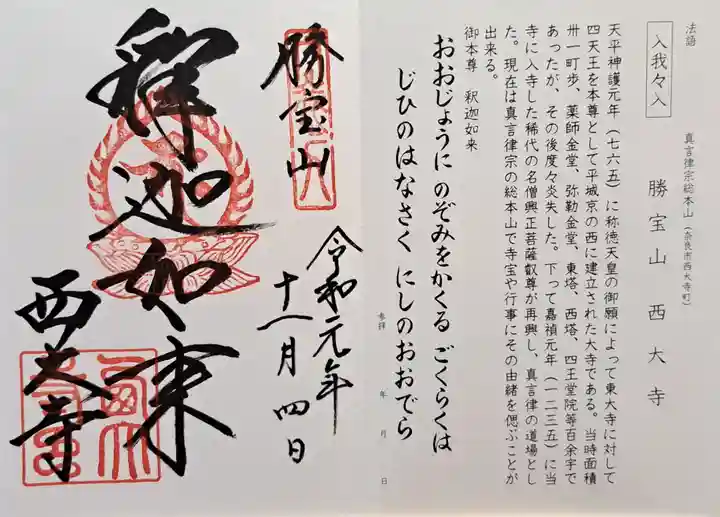 法語
入我々入
真言律宗総本山（奈良市西大寺町）
勝宝山 西大寺
天平神護元年（七六五）に称徳天皇の御願によって東大寺に対して
四天王を本尊として平城京の西に建立された大寺である。当時面積
卅一町歩、薬師金堂、弥勒金堂、東塔、西塔、四王堂院等百余宇で
あったが、その後度々炎失した。下って嘉禎元年（一二三五）に当
寺に入寺した稀代の名僧興正菩薩叡尊が再興し、真言律の道場とし
た。現在は真言律宗の総本山で寺宝や行事にその由緒を偲ぶことが
出来る。
御本尊 釈迦如来
おおじょうに のぞみをかくる ごくらくは
じひのはなさく にしのおおでら
参拝 年 月 日
勝宝山
令和元年
十一月四日
釋迦如来
西大寺